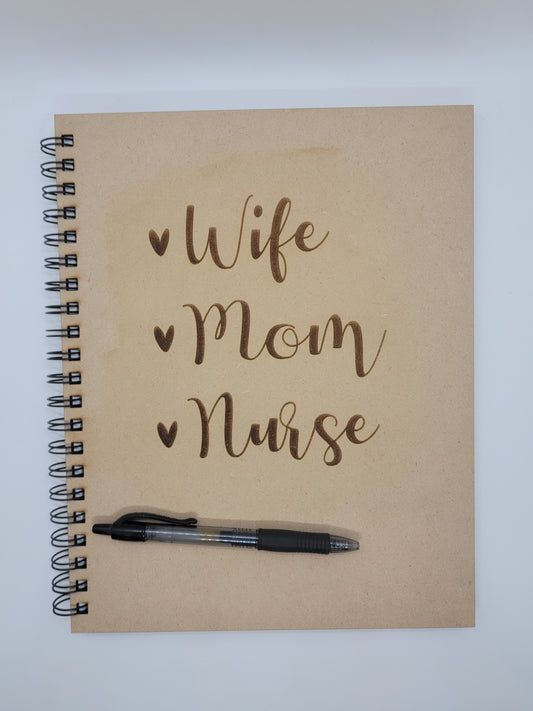 Wife
Mom
Nurse